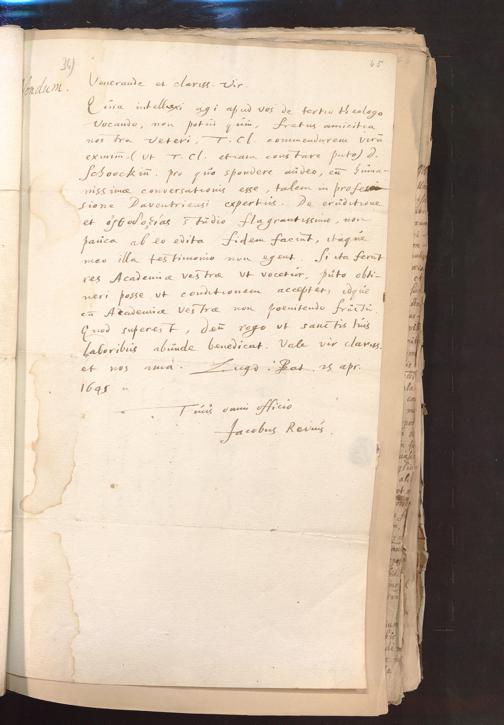 39)
65
Venerande et clariss. Vir.
Quia intellexi agi apud vos de tertio theologo
vocando, non potui quin, fretus amicitia
nostra veteri, T. Cl. commendarem virũ
eximiũ (ut T. Cl. etiam constare puto) D.
Schoockiũ. pro quo spondere audeo, eũ huma-
nissimæ conversationis esse, talem in profes-
sione Daventriensi expertus. De eruditione
et ὀρθοδοξίας studio flagrantissimo, non
pauca ab eo edita fidem faciũt, itaque
meo illa testimonio non egent. Si ita ferũt
res Academiæ vestræ ut vocetur, puto obti-
neri posse ut conditionem acceptet, idque
cũ Academiæ vestræ non poenitendo fructu.
Quod superest, Deũ rogo ut sanctis tuis
laboribus abunde benedicat. Vale vir clariss.
et nos ama. Lugd. Bat. 25 apr.
1645
Tuus omni officio
Jacobus Revius.